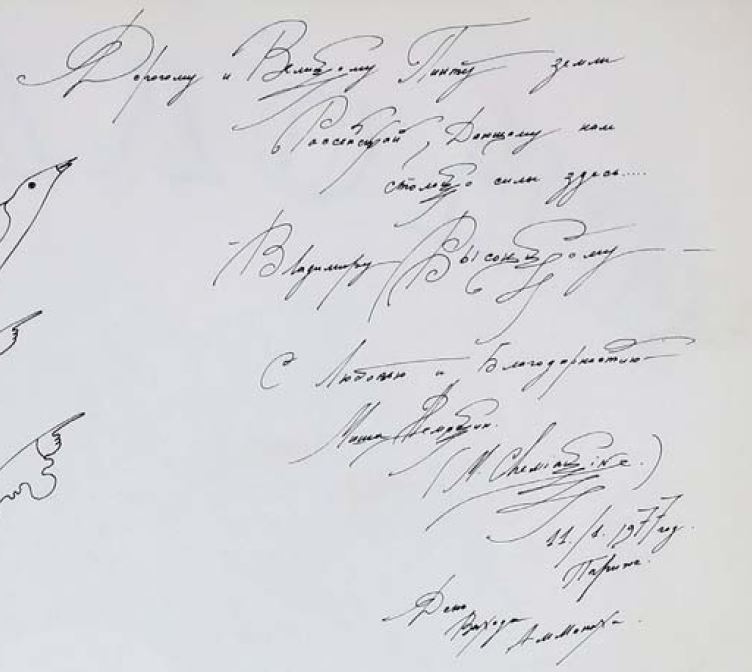 Дорогому и Великому Поэту земли
Российской, Дающему нам
столько силы здесь.....
– Владимиру Высоцкому –
С Любовью и Благодарностию
Миша Шемякин.
(M. Chemiakine.)
11./1. 1977 год.
Париж.
День
Выхода Альманаха.